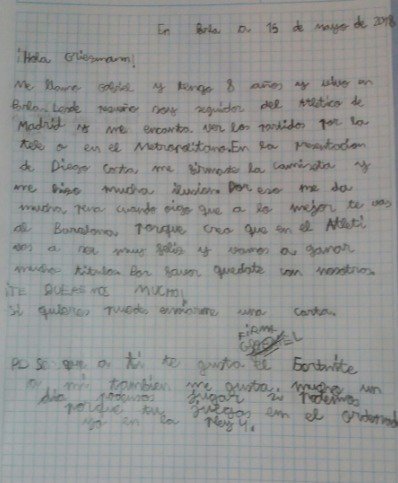 En Parla a 15 de mayo de 2018
¡Hola Griezmann!
Me llamo Gabriel y tengo 8 años y vivo en
Parla. Desde pequeño soy seguidor del Atletico de
Madrid y me encanta ver los partidos por la
tele o en el Metropolitano. En la presentacion
de Diego Costa me firmaste la camiseta y
me hizo mucha ilusion. Por eso me da
mucha pena cuando oigo que a lo mejor te vas
al Barcelona porque creo que en el Atleti
vas a ser muy feliz y vamos a ganar
muchos titulos. Por favor quedate con nosotros.
¡TE QUEREMOS MUCHO!
Si quieres puedes enviarme una carta.
FIRMA
PD Se que a ti te gusta el Fortnite
a mi tambien me gusta mucho un
dia podemos jugar si podemos
porque tu juegas en el ordenador
yo en la Play 4.